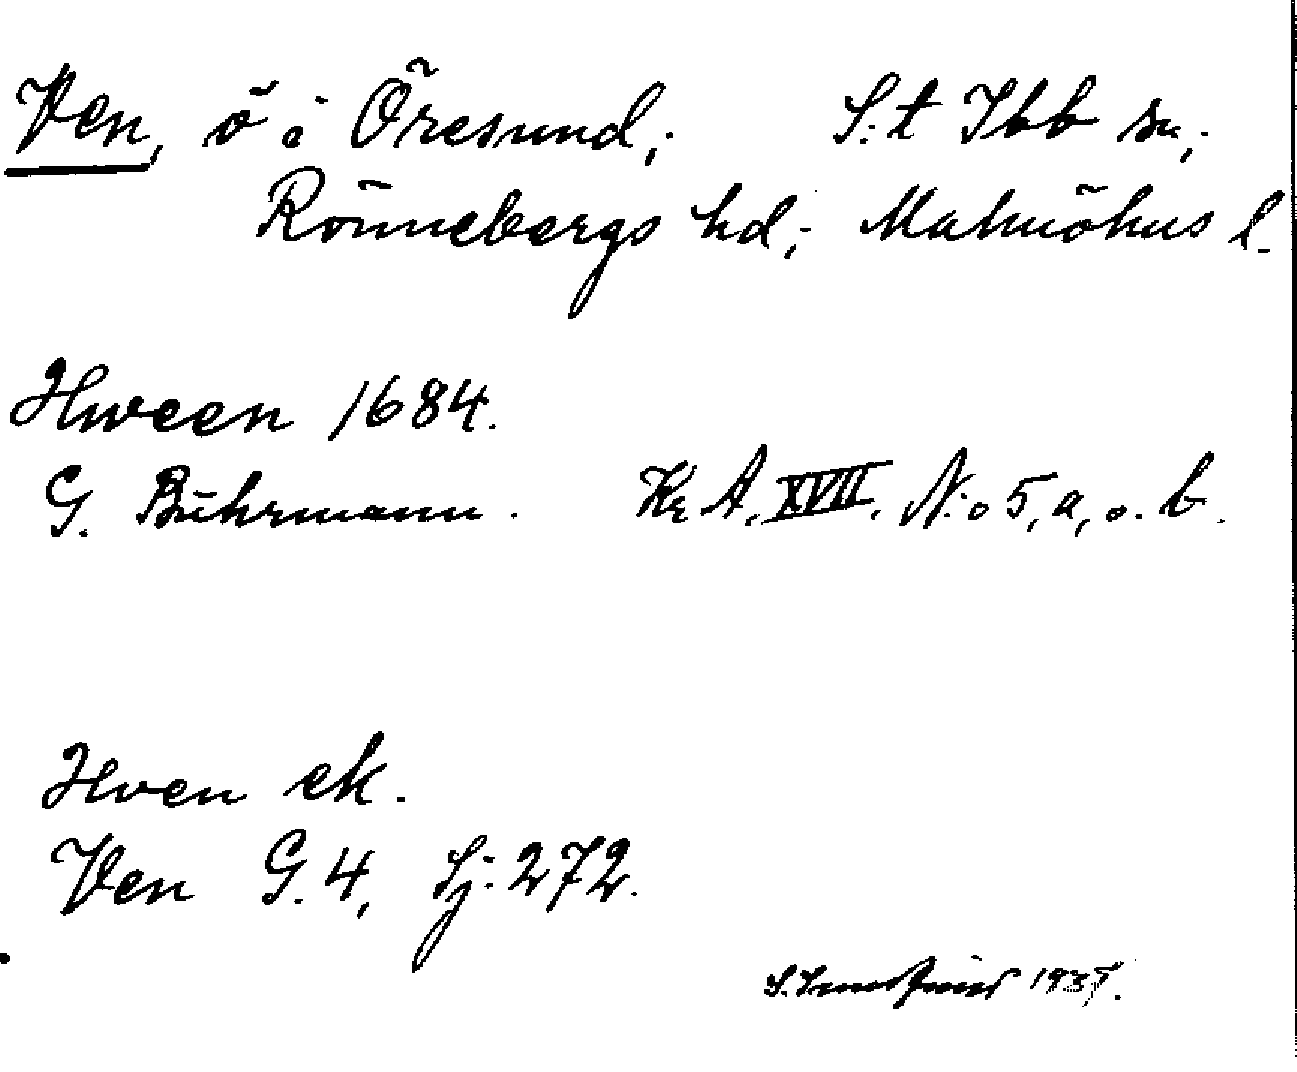 Ven, ö i Öresund; S:t Ibb sn;
Rönnebergs hd; Malmöhus l.
Hween 1684.
G. Buhrmann. Kr A. XVII. N:o 5, a, o. b.
Hven ek.
Ven G. 4, Sj: 272.
1937.